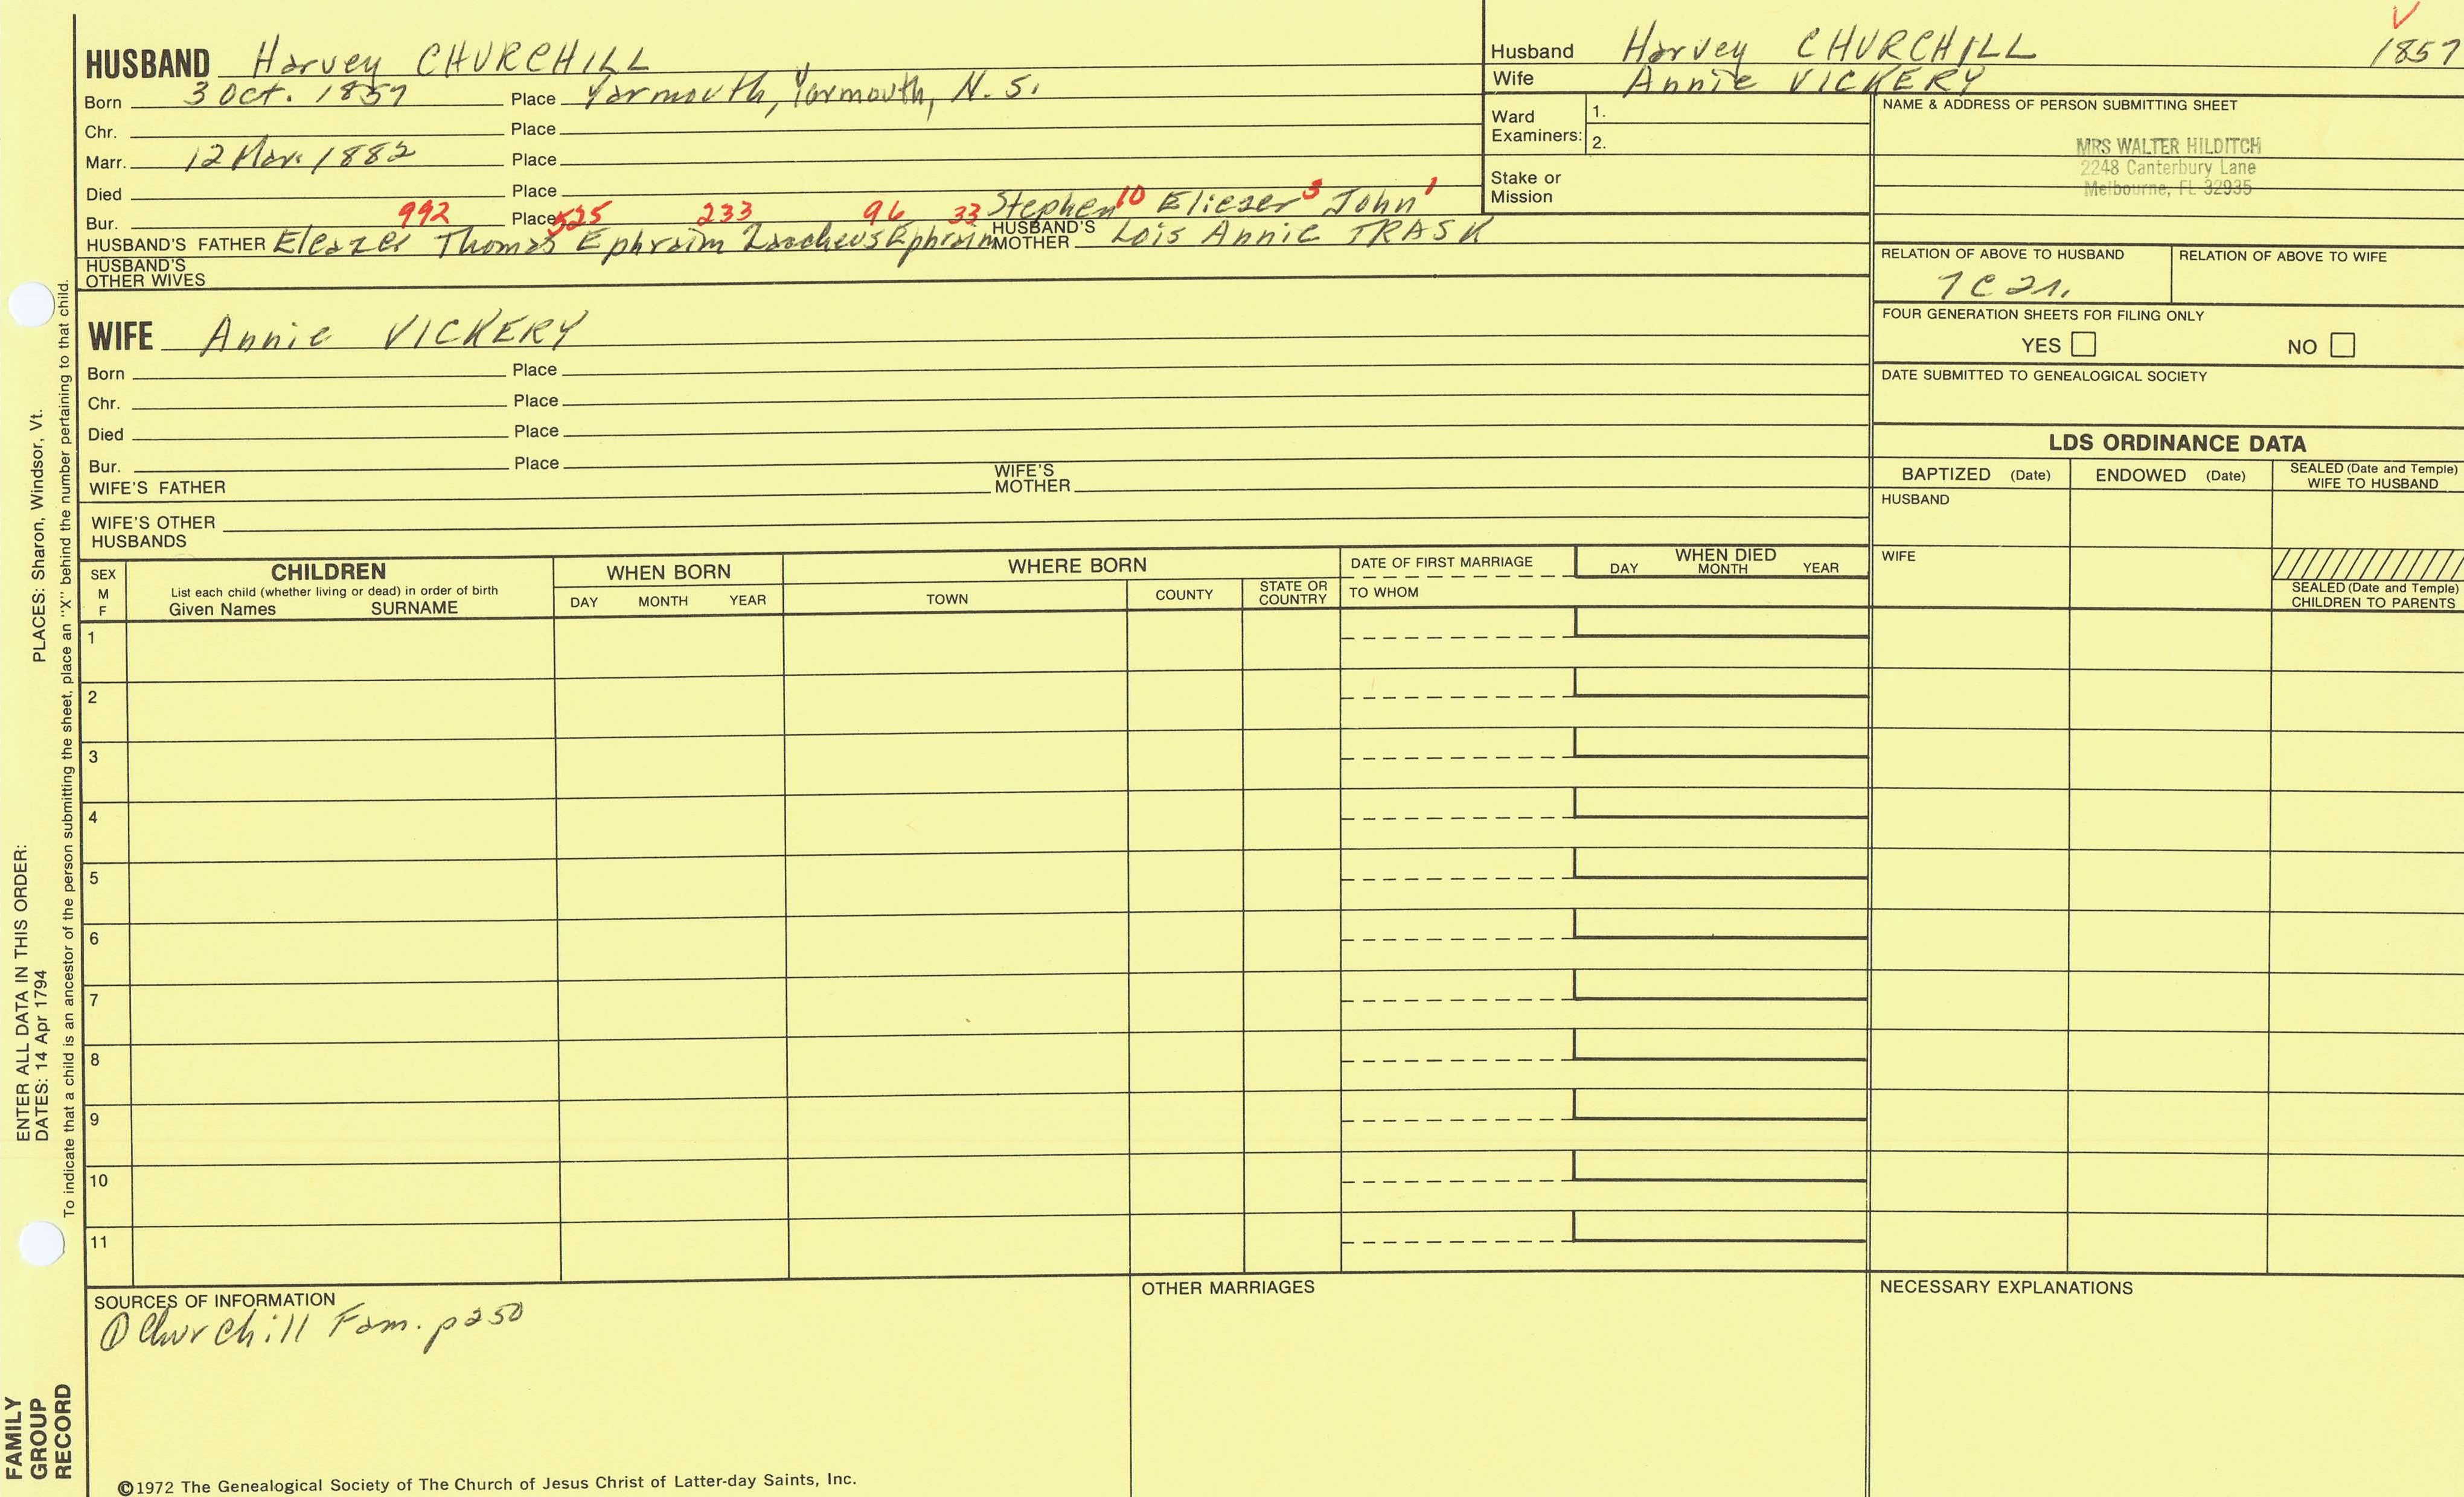 HUSBAND Harvey CHURCHILL
Born 3 Oct. 1857 Place Yarmouth, Yarmouth, N. S.
Chr. Place
Marr. 12 Mar. 1882 Place
Died Place
Bur. Place
992 525 233 96 33 Stephen 10 Eliezer 3 John 1
HUSBAND'S FATHER Eleazer Thomas Ephraim Zaccheus Ephraim HUSBAND'S MOTHER Lois Annie TRASK
HUSBAND'S OTHER WIVES
Husband Harvey CHURCHILL 1857
Wife Annie VICKERY
Ward Examiners: 1.
2.
Stake or Mission
NAME & ADDRESS OF PERSON SUBMITTING SHEET
MRS WALTER HILDITCH
2248 Canterbury Lane
Melbourne, FL 32935
RELATION OF ABOVE TO HUSBAND RELATION OF ABOVE TO WIFE
7C2r.
FOUR GENERATION SHEETS FOR FILING ONLY
YES NO
DATE SUBMITTED TO GENEALOGICAL SOCIETY
WIFE Annie VICKERY
Born Place
Chr. Place
Died Place
Bur. Place
WIFE'S FATHER WIFE'S MOTHER
WIFE'S OTHER HUSBANDS
LDS ORDINANCE DATA
BAPTIZED (Date) ENDOWED (Date) SEALED (Date and Temple) WIFE TO HUSBAND
HUSBAND
WIFE
SEALED (Date and Temple) CHILDREN TO PARENTS
SEX M F
CHILDREN
List each child (whether living or dead) in order of birth
Given Names SURNAME
WHEN BORN
DAY MONTH YEAR
WHERE BORN
TOWN COUNTY STATE OR COUNTRY
DATE OF FIRST MARRIAGE
TO WHOM
WHEN DIED
DAY MONTH YEAR
1
2
3
4
5
6
7
8
9
10
11
SOURCES OF INFORMATION
① Churchill Fam. p250
OTHER MARRIAGES
NECESSARY EXPLANATIONS
©1972 The Genealogical Society of The Church of Jesus Christ of Latter-day Saints, Inc.
FAMILY GROUP RECORD
ENTER ALL DATA IN THIS ORDER:
DATES: 14 Apr 1794 PLACES: Sharon, Windsor, Vt.
To indicate that a child is an ancestor of the person submitting the sheet, place an "X" behind the number pertaining to that child.